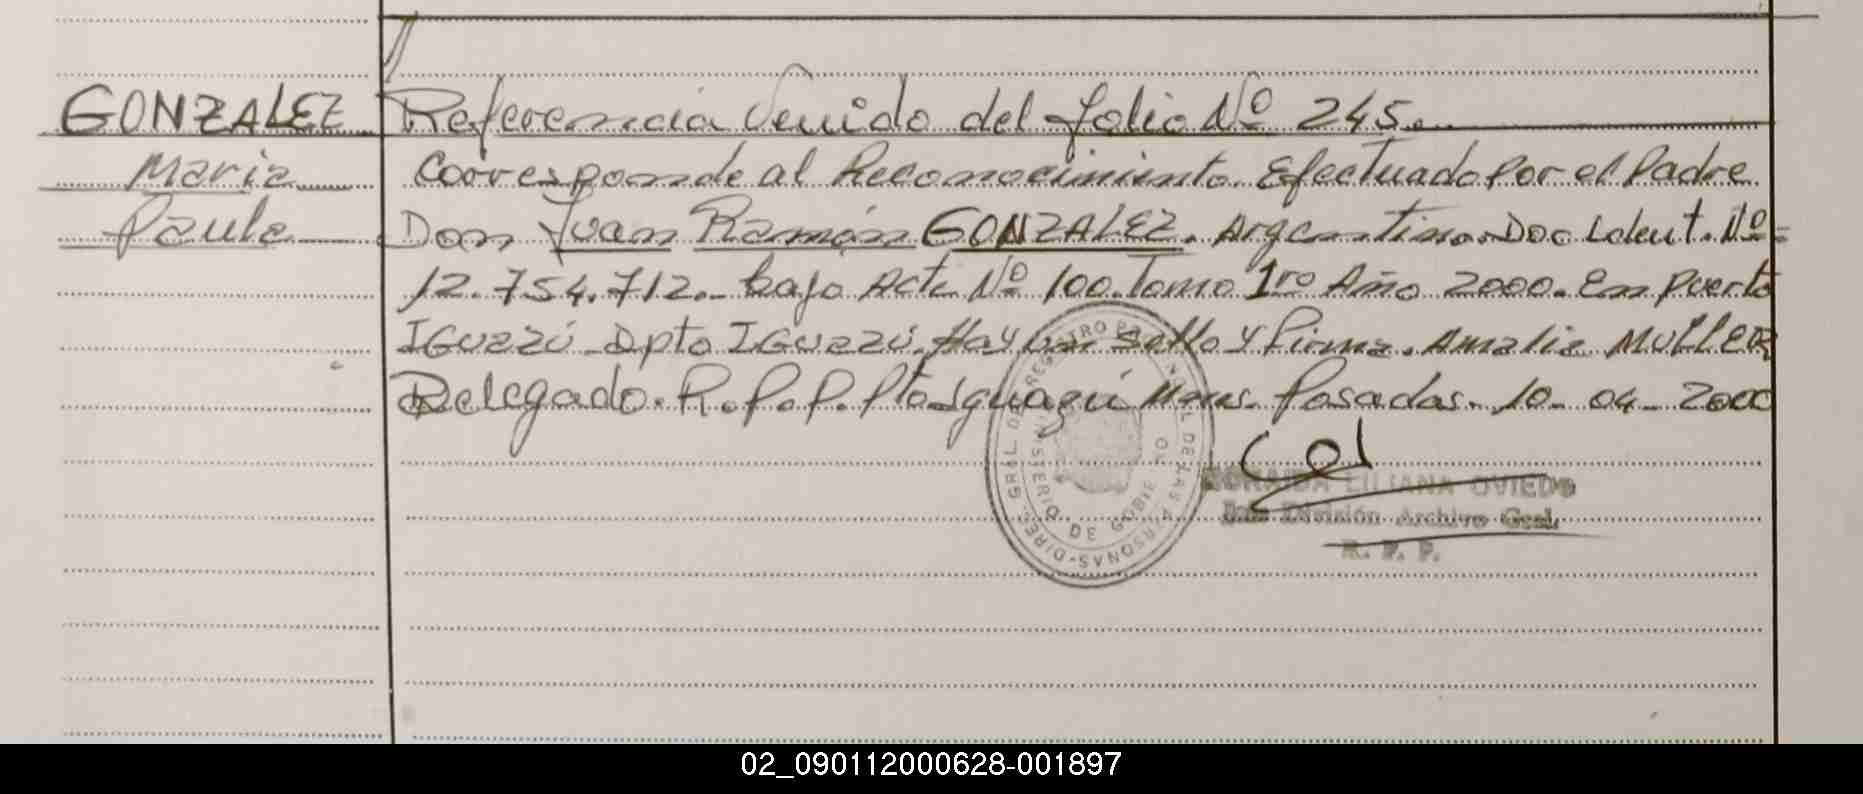 GONZALEZ
Maria
Paula
Referencia Venido del folio Nº 245.
Corresponde al Reconocimiento Efectuado Por el Padre
Don Juan Ramón GONZALEZ. Argentino. Doc Ident. Nº=
12.754.712.- bajo Acta Nº 100. Tomo 1ro Año 2000. En Puerto
IGuazú - Dpto IGuazú. Hay un Sello y Firma. Amalia MULLER
Delegado. R.P.P. Pto Iguazú Mnes. Posadas. 10-04-2000
DIREC. GRAL. DEL REGISTRO PROVINCIAL DE LAS PERSONAS
MINISTERIO DE GOBIERNO
LILIANA OVIEDO
Jefe División Archivo Gral.
R. P. P.
02_090112000628-001897